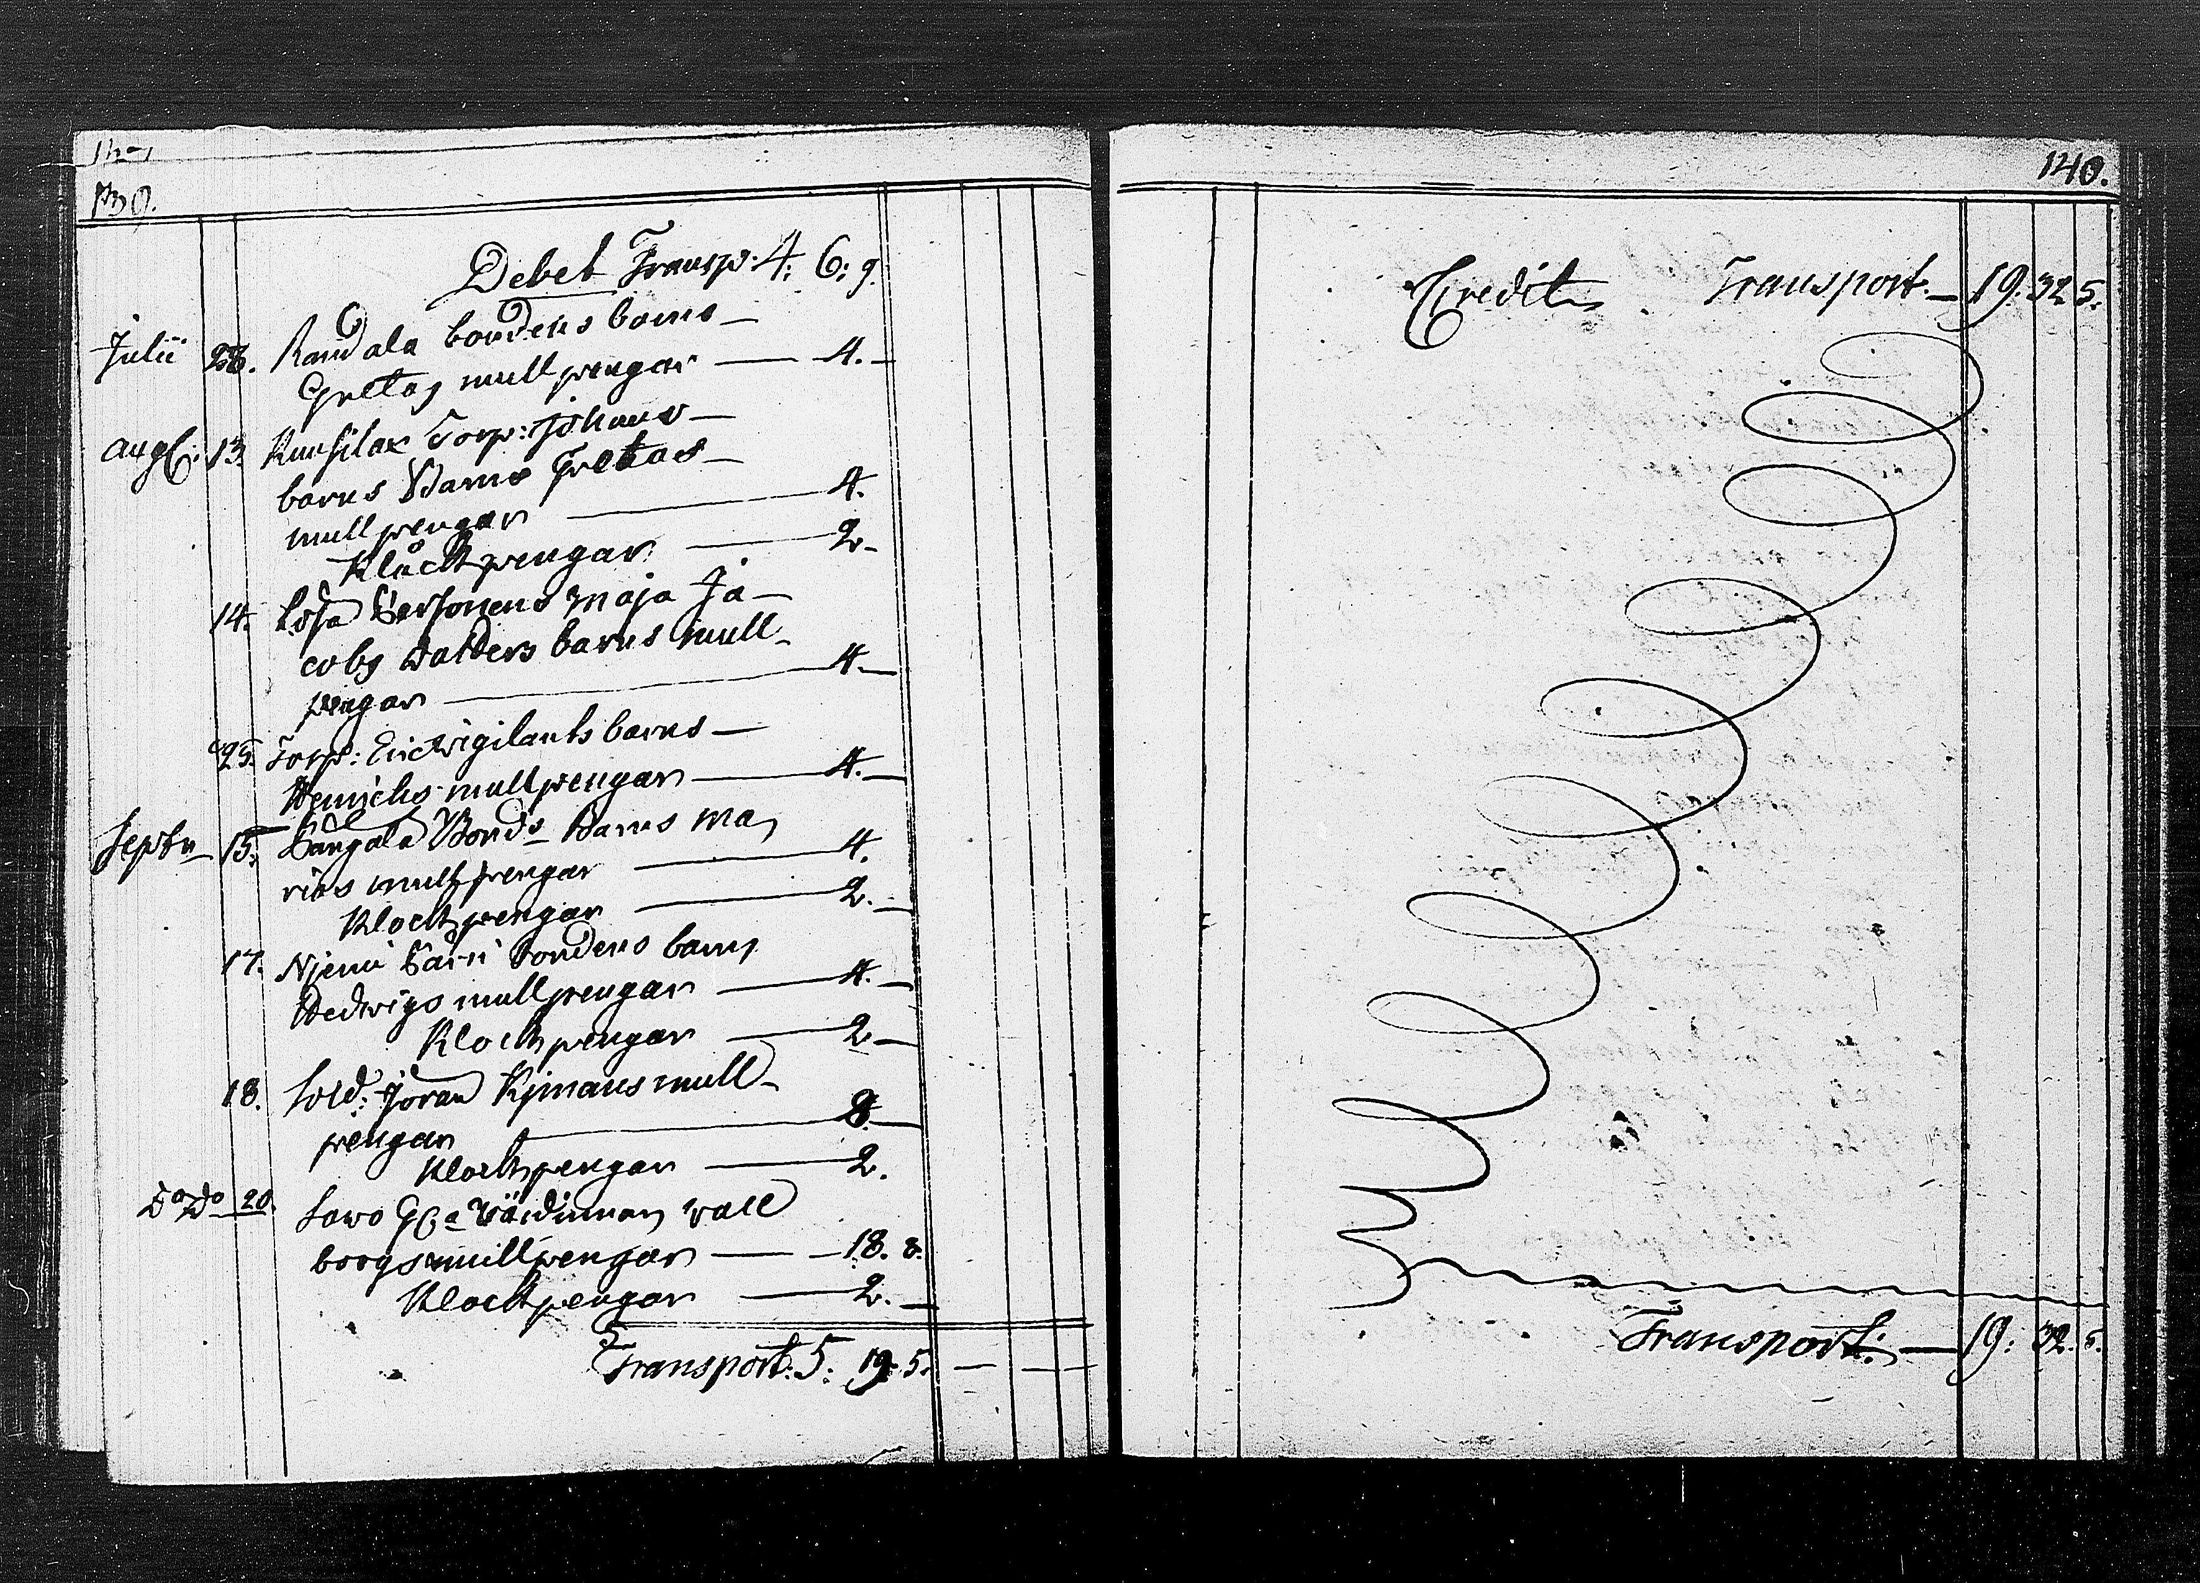 139.
Debet Transp: 4: 6: 9.
Julii 28. Randala bondens barns
Gretas mullpengar 4.
Aug: 13. Kunsilax Torp: Johans
barns Barns Gretas
mullpengar 4.
Klåckpengar 2.
14. Maja Ja-
cobs dotters barns mull-
pengar 4.
25. Torp: Eric Vigilants barns
Henrichs mullpengar 4.
Septr 15. Långala Bonds Barns Ma
rias mullpengar 4.
Klockpengar 2.
17. Njemi bondens barns
Hedwigs mullpengar 4.
Klockpengar 2
18. Sold: Jöran Kjmans mull-
pengar 8.
Klockpengar 2.
Do Do 20. Sawo Wärdinnan Wall
borgs mullpengar 18. 8.
Klockpengar 2.
Transport: 5: 19. 5.
140.
Credit Transport. 19: 32 5.
Transport: 19: 32. 5.